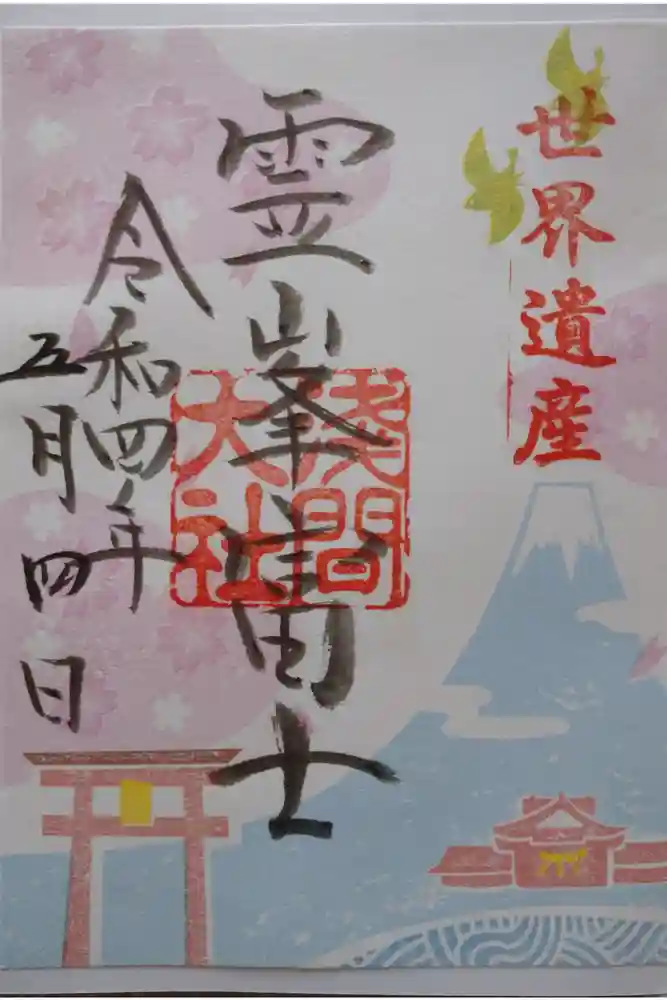 世界遺産
霊峯富士
浅間
大社
令和四年
五月四日